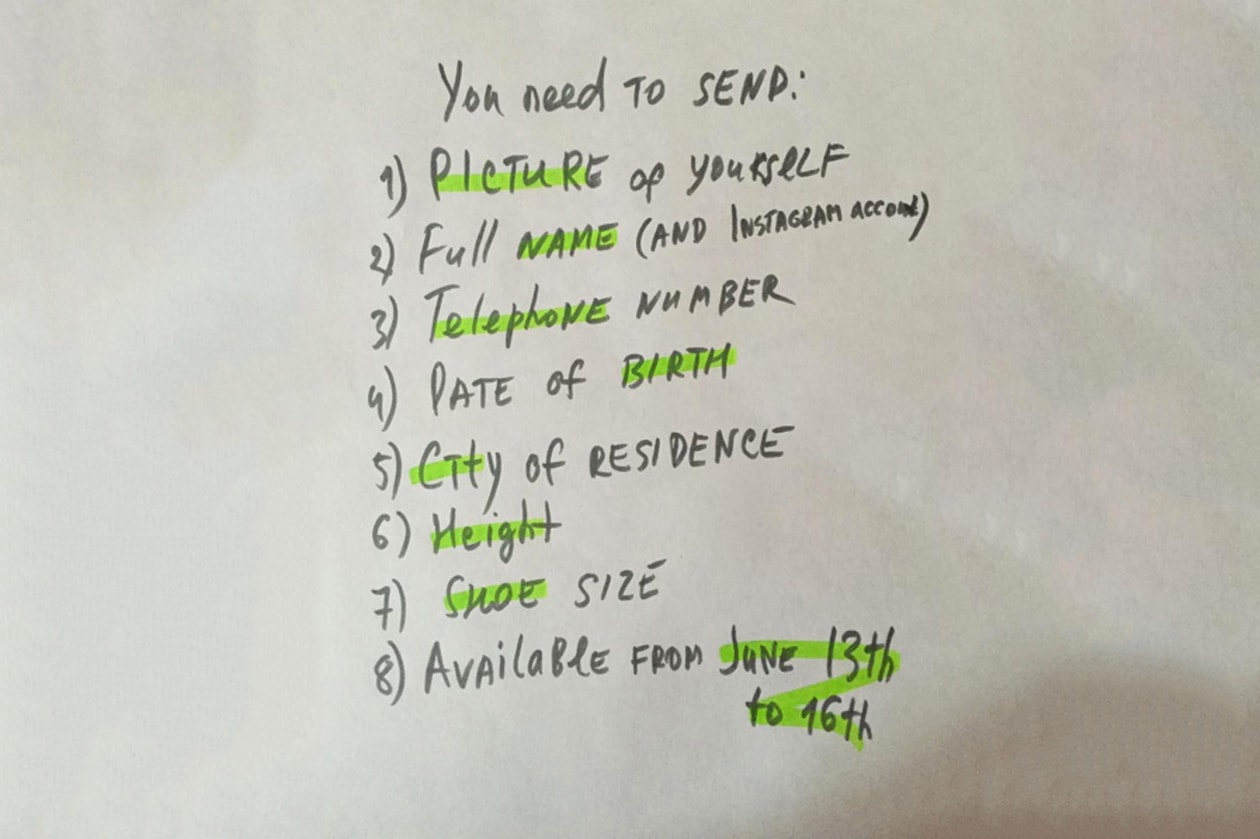 You need TO SEND:
1) PICTURE of yourselF
2) Full NAME (AND INSTAGRAM ACCOUNT)
3) Telephone NUMBER
4) DATE of BIRTH
5) CITy of RESIDENCE
6) Height
7) SHOE SIZE
8) AVAilaBlE FROM JUNE 13th
to 16th